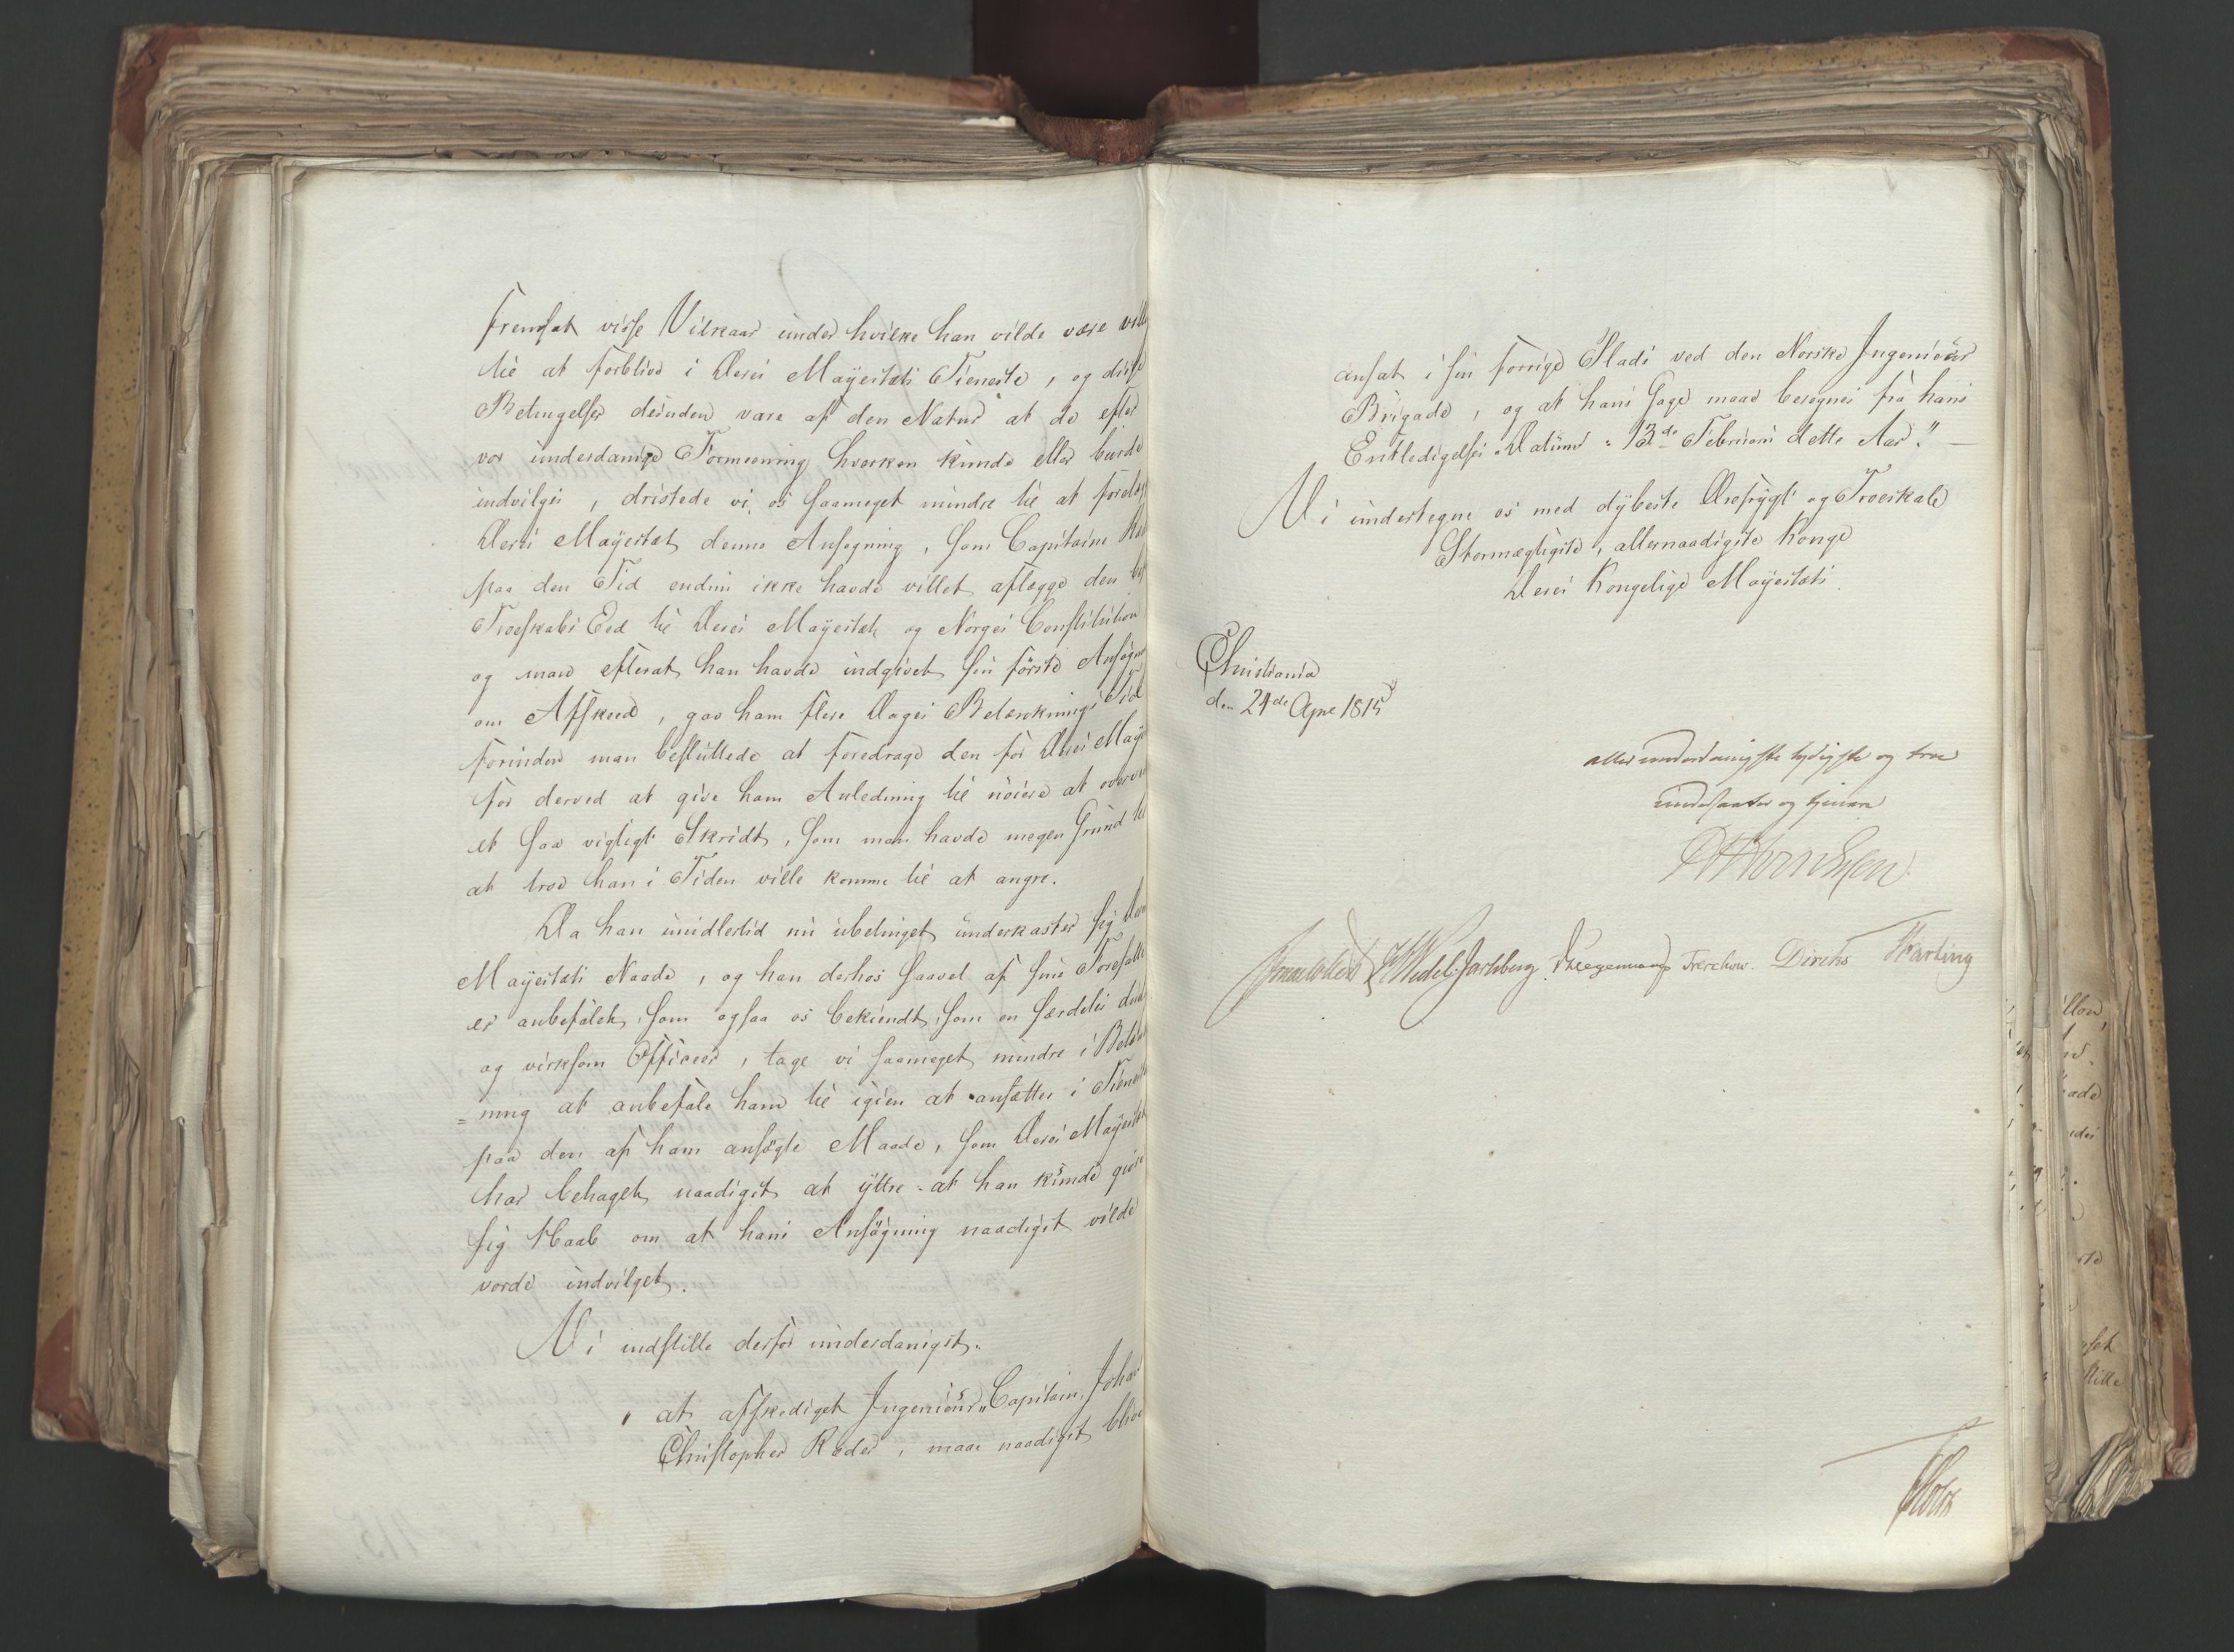 fremsat visse Vilkaar under hvilke han vilde være villi
til at forblive i Deres Mayestæts Tieneste, og disse
Betingelser desuden vare af den Natur at de efter
vor underdanige Formeening hverken kunde eller burde
indvilges, dristede vi os saameget mindre til at forelæg
Deres Mayestæt denne Ansøgning, som Capitaine
paa den Tid endnu ikke havde villet aflægge den
Troeskabs Eed til Deres Mayestæt og Norges Constitution
og man efterat han havde indgivet sin første Ansøgn
om Afskeed, gav ham flere Dages Betænknings Tid
forinden man besluttede at foredrage den for Deres Maye
for derved at give ham Anledning til nöiere at overvei
et saa vigtigt Skridt, som man havde megen Grund til
at troe han i Tiden ville komme til at angre.
Da han imidlertid nu ubetinget underkaster sig Deres
Mayestæts Naade, og han derhos saavel af sine Foresatte
er anbefalet, som ogsaa os bekiendt, som en særdeles duel
og virksom Officeer, tage vi saameget mindre i Betænk
=ning at anbefale ham til igien at ansættes i Tieneste
paa den af ham ansøgte Maade, som Deres Mayestæt
har behaget naadigst at yttre at han kunde giøre
sig Haab om at hans Ansøgning naadigst vilde
vorde indvilget.
Vi indstille derfor underdanigst.
at afskediget Ingenieur Capitain, Johan
Christopher Ræder, maae naadigst blive
ansat i sin forrige Plads ved den Norske Ingenieur
Brigade, og at hans Gage maae beregnes fra hans
Entledigelses Datum 13de Februari dette Aar."
Vi undertegne os med dybeste Ærefrygt og Troeskab
Stormægtigste, allernaadigste Konge
Deres Kongelige Mayestæts
Christiania
den 24de Apr 1815
allerunderdanigste lydigste og troe
undersaatter og tjenere
Sommerhielm Wedel Jarlsberg D Hegermann Treschow. Diriks Harting
Holst